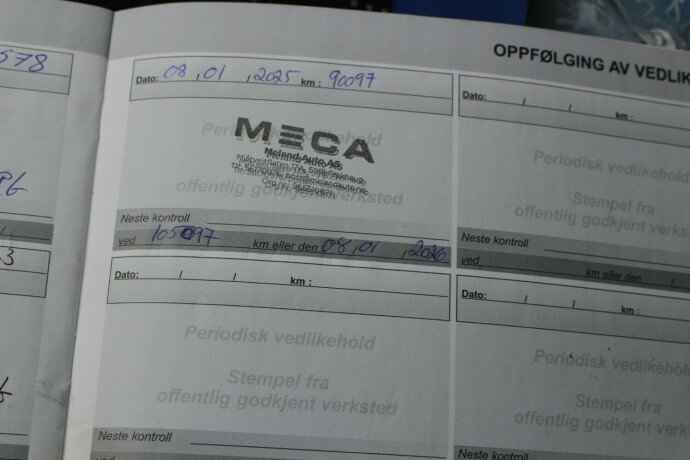 578
OPPFØLGING AV VEDLIK
Dato: 08 , 01 , 2025 km : 90097
Periodisk vedlikehold
MECA
Meland Auto AS
offentlig godkjent verksted
Neste kontroll
ved 105097 km eller den 08 , 01 , 2026
Dato: / / km :
Periodisk vedlikehold
Stempel fra
offentlig godkjent verksted
Neste kontroll
ved km eller den /
3
Dato: / / km :
Periodisk vedlikehold
Stempel fra
offentlig godkjent verksted
Neste kontroll
Dato: / / km :
Periodisk vedlikehold
Stempel fra
offentlig godkjent verksted
Neste kontroll